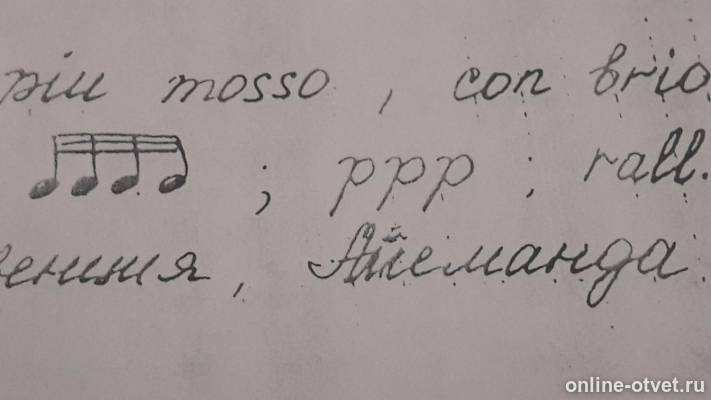 piu mosso, con brio
; ppp ; rall.
Аллеманда
online-otvet.ru